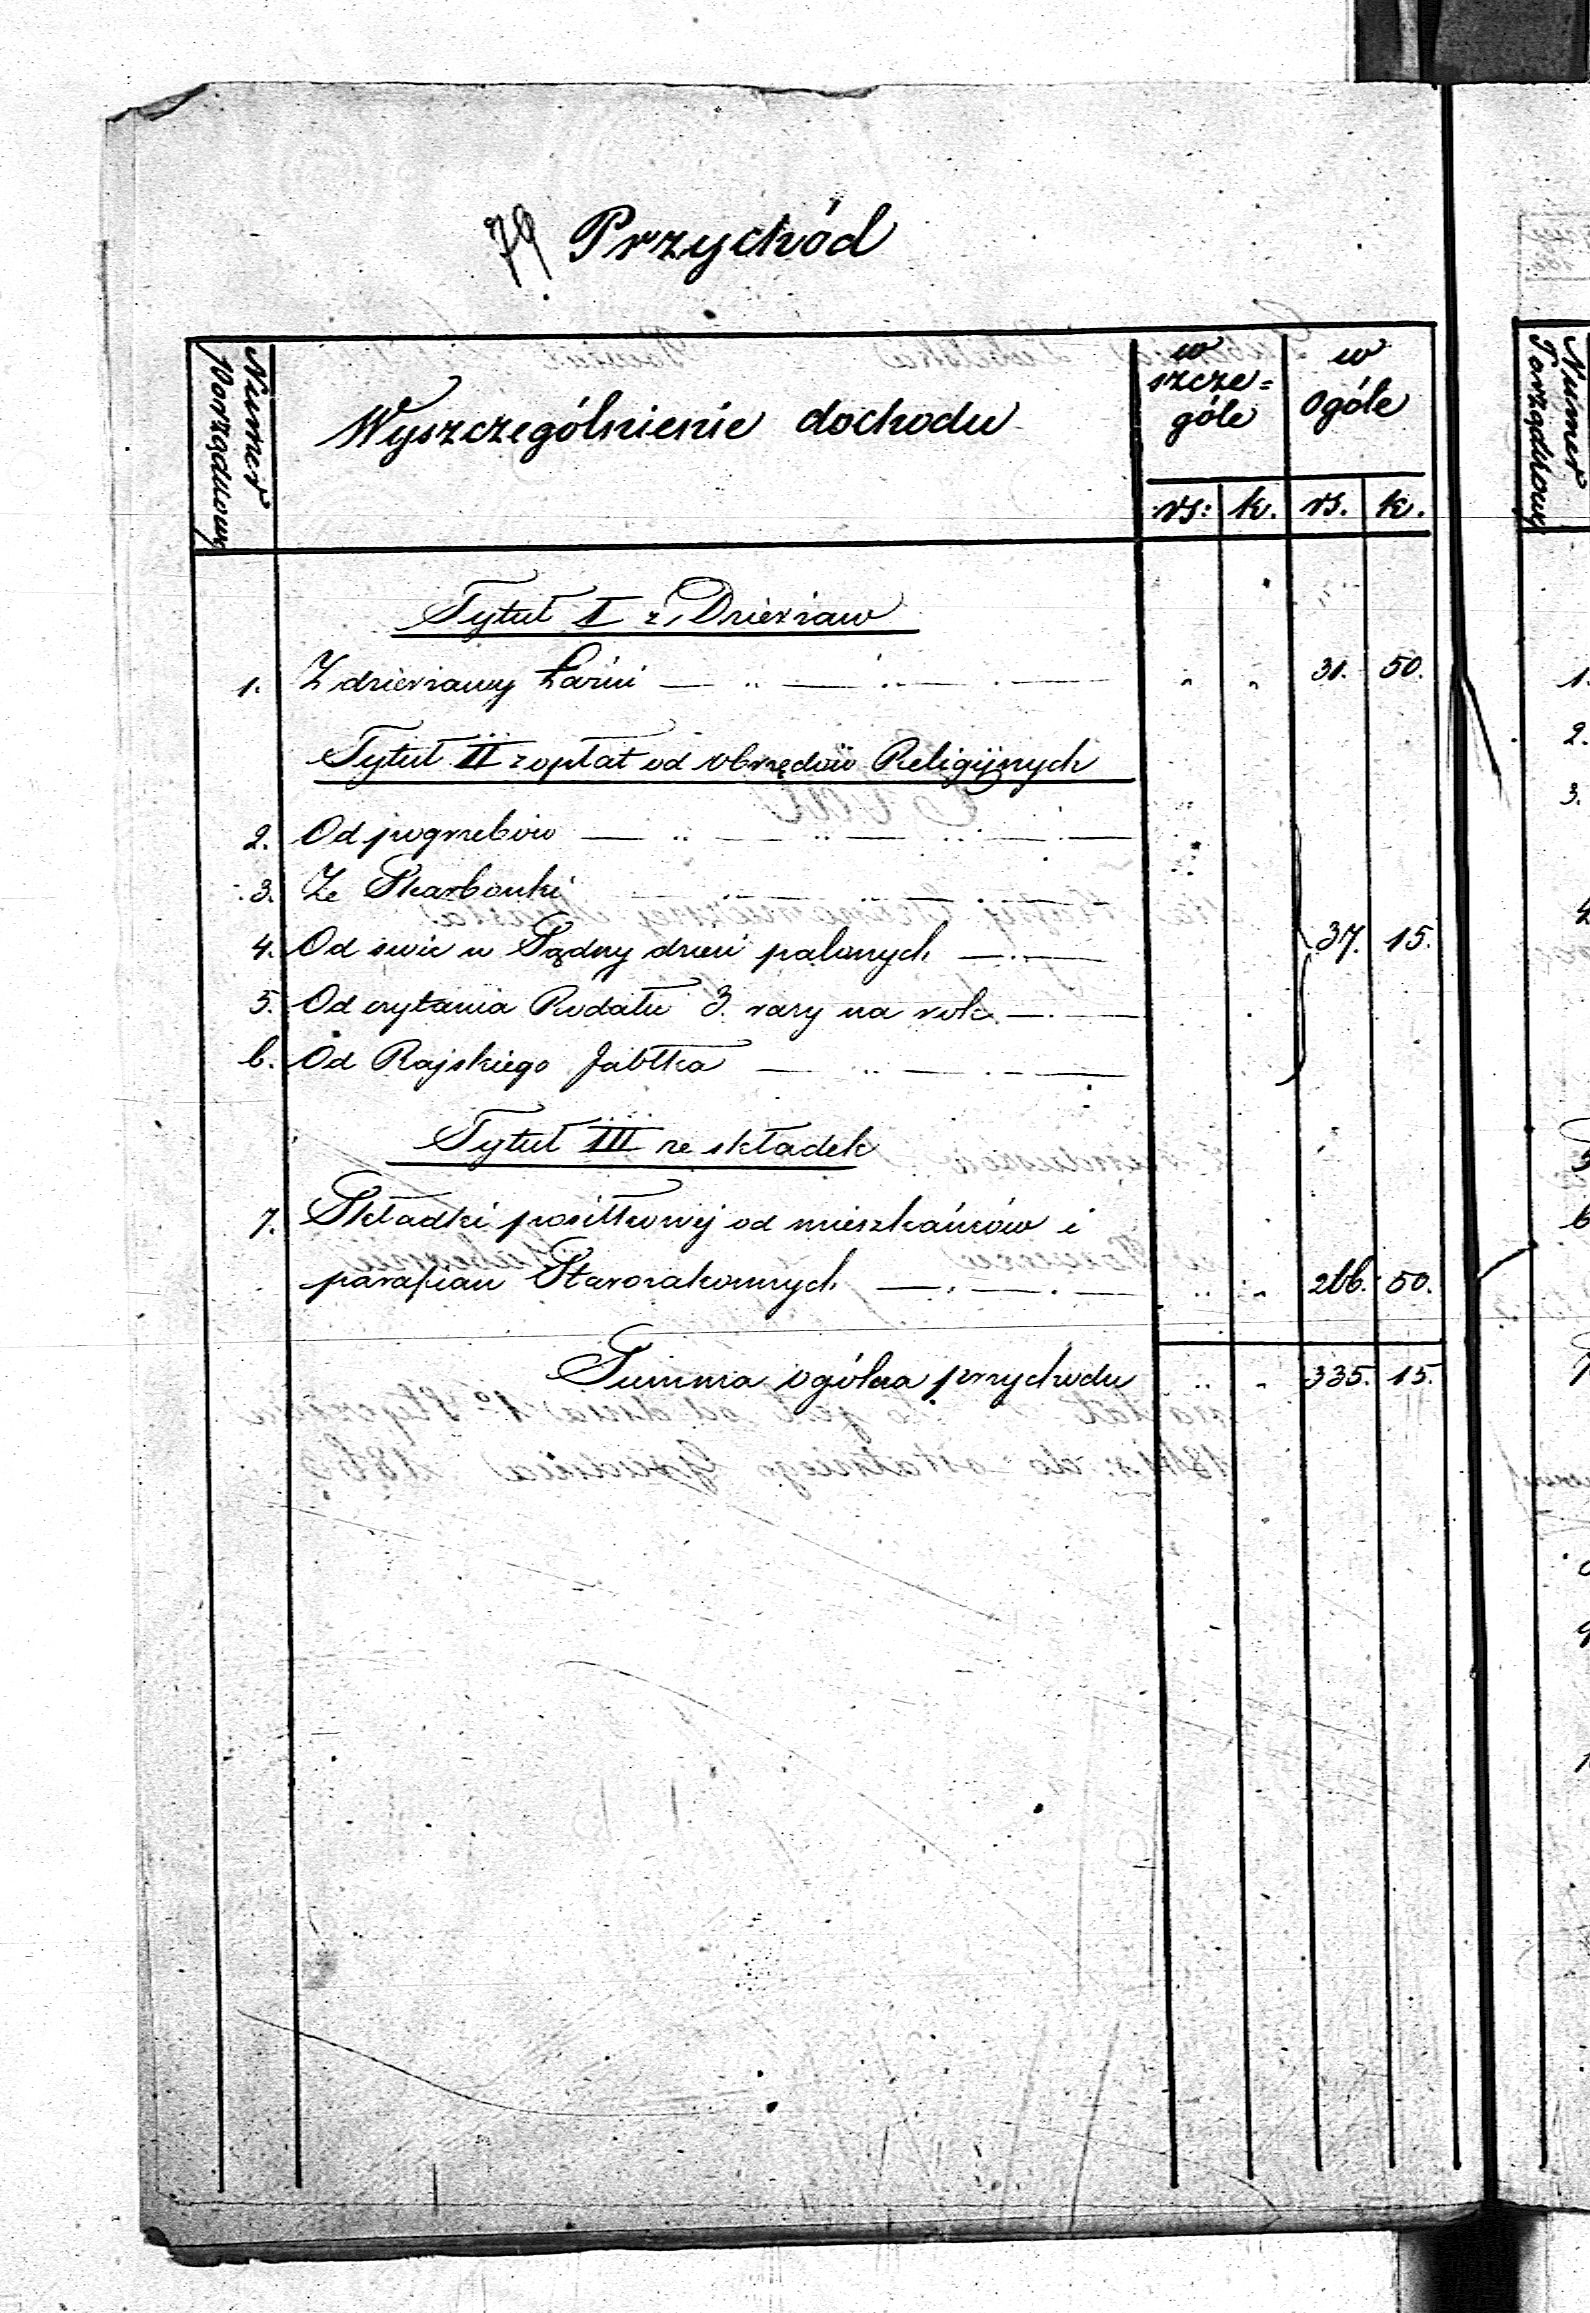 79 Przychód
Numer Porządkowy
Wyszczególnienie dochodu
w szcze=góle
w Ogóle
rs: k. rs. k.
Tytuł I z Dzierżaw
1. Z dzierżawy Łaźni " " 31. 50.
Tytuł II z opłat od obrzędów Religijnych
2. Od pogrzebów
3. Ze Skarbonki
4. Od świc w Sądny dzień palonych 37. 15.
5. Od czytania Rodału 3 razy na rok
6. Od Rajskiego Jabłka
Tytuł III ze składek
7. Składki posiłkowej od mieszkańców i
parafian Starozakonnych " " 266. 50.
Summa ogólna przychodu " " 335. 15.
Numer Porządkowy
1.
2.
3.